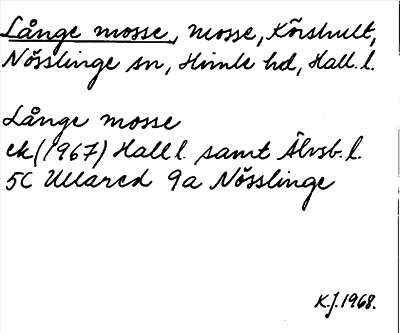 Långe mosse, mosse, Körshult,
Nösslinge sn, Himle hd, Hall. l.
Långe mosse
ek (1967) Hall l. samt Älvsb. l.
5C Ullared 9a Nösslinge
K.J. 1968.